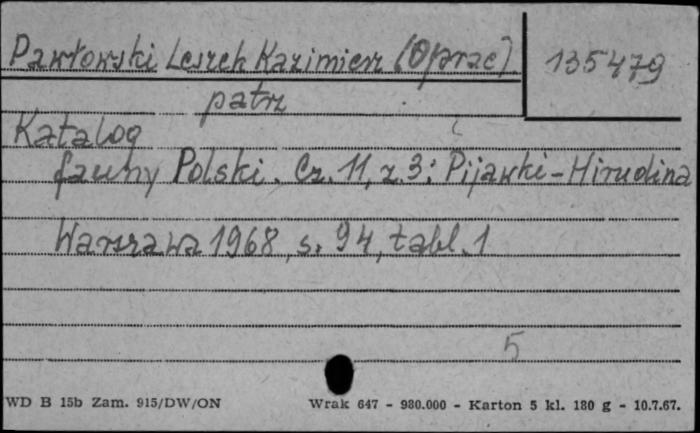 Pawłowski Leszek Kazimierz (Oprac). 135479
patrz
Katalog
fauny Polski. Cz. 11, z. 3: Pijawki-Hirudinea
Warszawa 1968, s. 94, tabl. 1
5
WD B 15b Zam. 915/DW/ON Wrak 647 - 980.000 - Karton 5 kl. 180 g - 10.7.67.